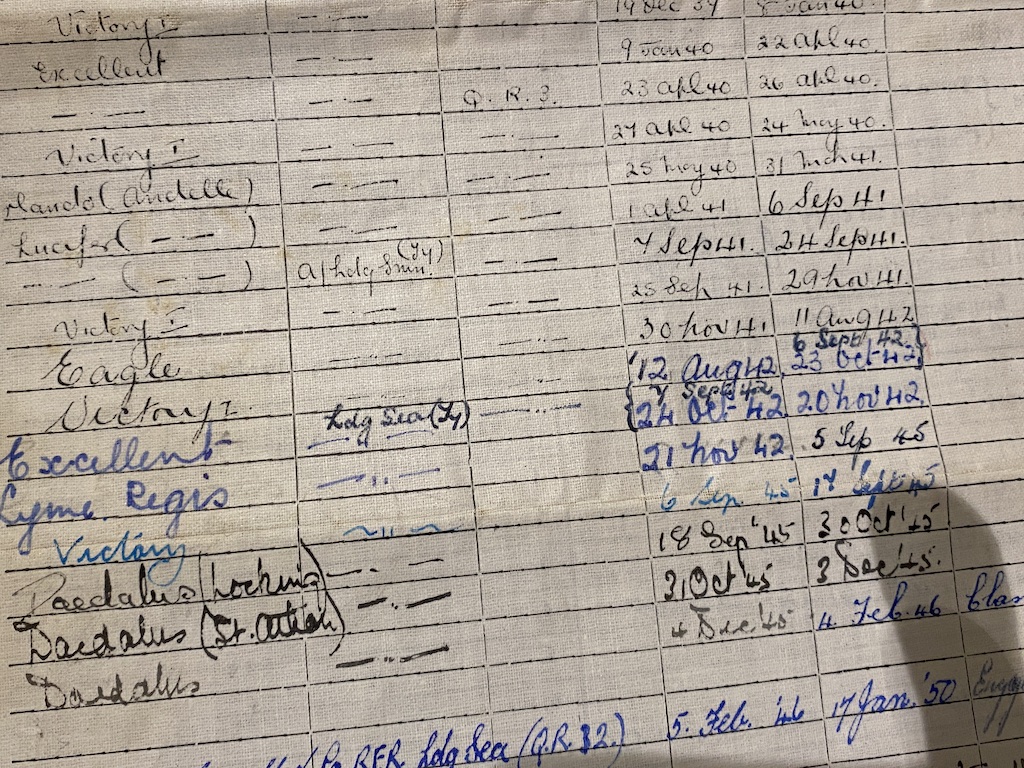 Victory I —·— 19 Dec 39 8 Jan 40.
Excellent —·— 9 Jan 40 22 Apl 40.
—·— —·— Q. R. 3. 23 Apl 40 26 Apl 40.
Victory I —·— —·— 27 Apl 40 24 May 40.
(Andelle) —·— —·— 25 May 40 31 Mch 41.
Lucifer ( —·— ) —·— —·— 1 Apl 41 6 Sep 41
—·— ( —·— ) A/Ldg Smn. (Ty) —·— 7 Sep 41. 24 Sep 41.
Victory I —·— —·— 25 Sep 41. 29 Nov 41.
Eagle —·— —·— 30 Nov 41 11 Aug 42
Victory I —·— —·— 12 Aug 42 6 Sept 42. 23 Oct 42
Excellent Ldg Sea (Ty) —·— 7 Sept 42 24 Oct 42 20 Nov 42.
Lyme Regis —··— 21 Nov 42. 5 Sep 45
Victory —··— 6 Sep 45 17 Sept 45
Daedalus (Locking) —·— 18 Sep '45 30 Oct '45
Daedalus (St. Athan) —·— 31 Oct '45 3 Dec '45.
Daedalus —··— 4 Dec '45 4. Feb. 46 Clas
RFR Ldg Sea (Q.R. 2.) 5. Feb. '46 17 Jan. '50